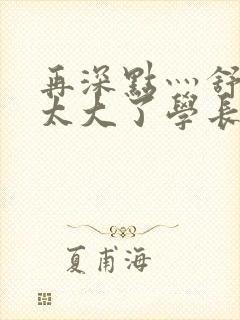 再深點灬舒
太大了學長
夏甫海